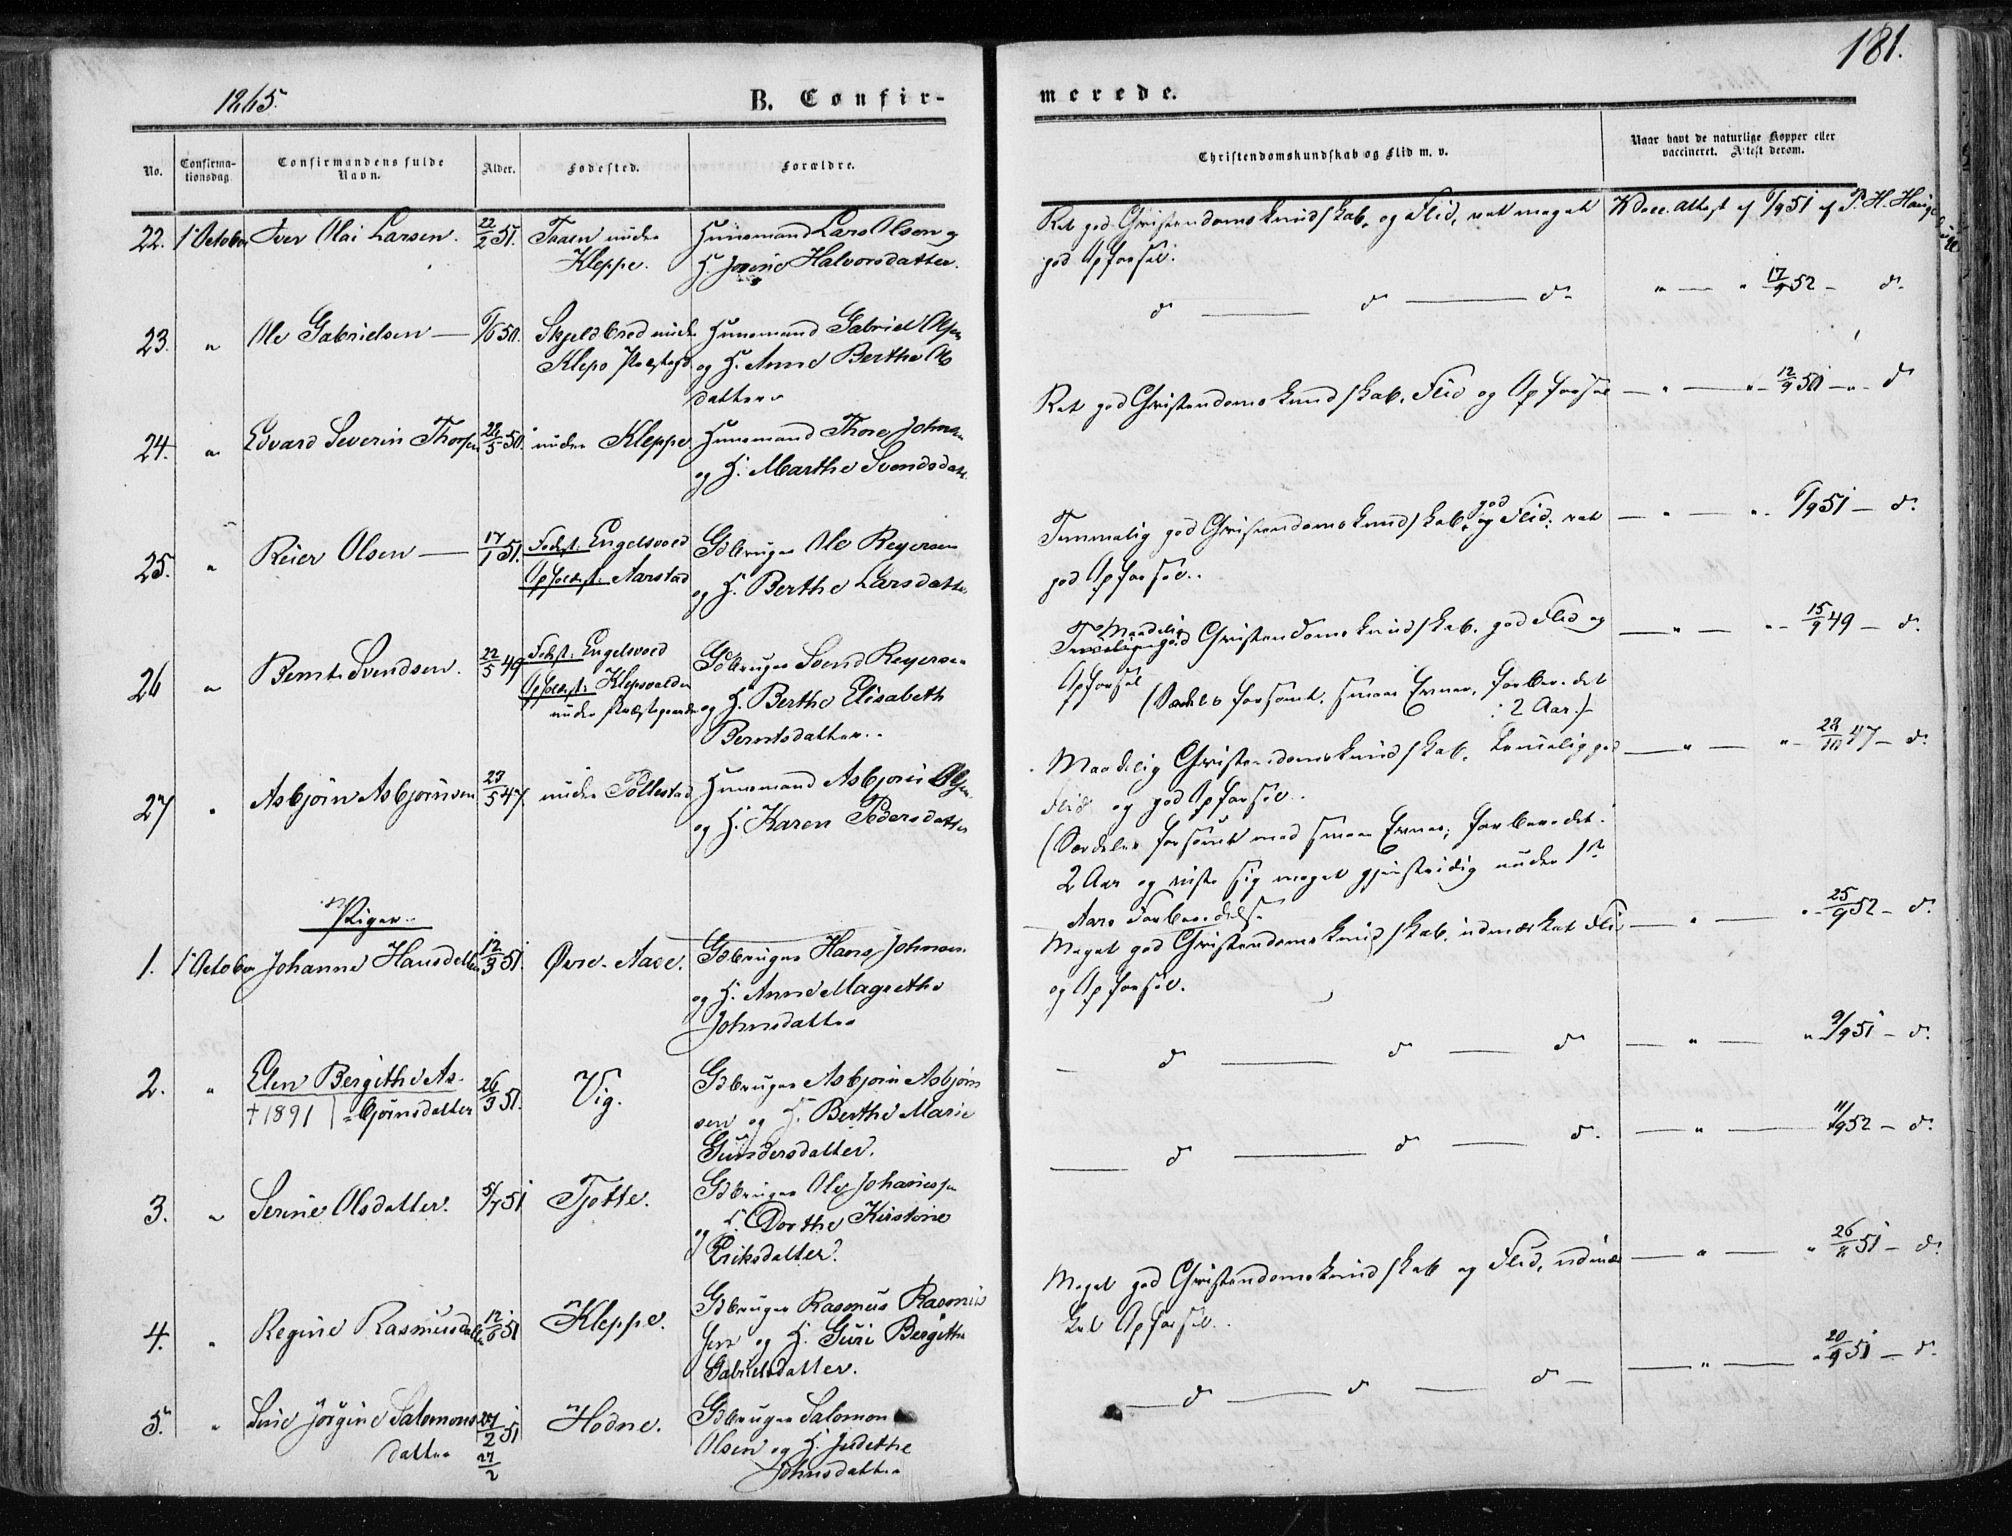 181.
1865.
B. Confir-
merede.
No.
Confirma-
tionsdag.
Confirmandens fulde
Navn.
Alder.
Fødested.
Forældre.
Christendomskundskab og Flid m. v.
Naar havt de naturlige Kopper eller
vaccineret. Attest derom.
22. 1 October Iver Olai Larsen. 22/2 51. under Husmand Lars Olsen og
Kleppe. H. Halvorsdatter.
Ret god Christendomskundskab, og Flid, ret meget
god Opførsel.
Vacc. attest af 1/9 51 af P. H. Hauge
23. " Ole Gabrielsen — 1/6 50. under Husmand Gabriel Olsen
Klepp Præstegd. og H. Anne Berthe Ols
datter
d — d — d. " — " 17/9 52 — d.
24. " Edvard Severin Thorsen 28/5 50. under Kleppe Husmand Thore Johnsen
og H. Marthe Svendsdatt.
Ret god Christendomskundskab, Flid og Opførsel — " — " 12/9 50 — " d
25. " Reier Olsen — 17/1 51. Fødst: Engelsvold Gdbruger Ole Reyersen
Opholdst: Aarstad og H. Berthe Larsdatter
Temmelig god Christendomskundskab, god og Flid, ret
god Opførsel.
— " — " 1/9 51 — d.
26 " Bernt Svendsen. 22/5 49 Fødst: Engelsvold Gdbruger Svend Reyersen
Opholdst: Klepsvolden og H. Berthe Elisabeth
under Præstegaarden Berntsdatter.
Maadelig
god Christendomskundskab, god Flid og
Opførsel
(Særdeles forsømt, smaae Evner, forberedet
: 2 Aar.)
— " — " 15/9 49 — d.
27 " Asbjørn Asbjørnsen 23/5 47. under Pollestad Husmand Asbjørn Olsen
og H. Karen Pedersdatter
Maadelig Christendomskundskab, temmelig god
Flid og god Opførsel.
(Særdeles forsømt med smaae Evner; forberedet
2 Aar og viste sig meget gjenstridig under 1ste
Aars Forberedelse.
— " — " 28/10 47 — d.
Piger.
1. 1 October Johanne Hansdatter 12/3 51. Øvre-Aase. Gdbruger Hans Johnsen
og H. Anne Magrethe
Johnsdatter
Meget god Christendomskundskab, udmærket Flid
og Opførsel.
— " — " 25/9 52 — d.
2. " Elen Bergithe As- 26/3 51. Vig. Gdbruger Asbjørn Asbjørn
† 1891 =bjørnsdatter sen og H. Berthe Marie
Gundersdatter.
d — d — d — " — " 9/9 51 — d.
3. " Serine Olsdatter. 5/7 51 Tjøtte. Gdbruger Ole Johannesen
og H. Dorthe Kirstine
Eriksdatter.
— d — d — d. — " — 11/9 52 — d.
4. " Regine Rasmusdatter 12/6 51 Kleppe. Gdbruger Rasmus Rasmus
sen og H. Guri Bergithe
Gabrielsdatter.
Meget god Christendomskundskab og Flid, udmær
ket Opførsel.
— " — " 26/8 51 — d.
5. " Sine Jørgine Salomons 27/2 51 Hodne. Gdbruger Salomon
datter 27/2 Olsen og H. Judethe
Johnsdatter
— d — d — d — — " — " 20/9 51 — d.